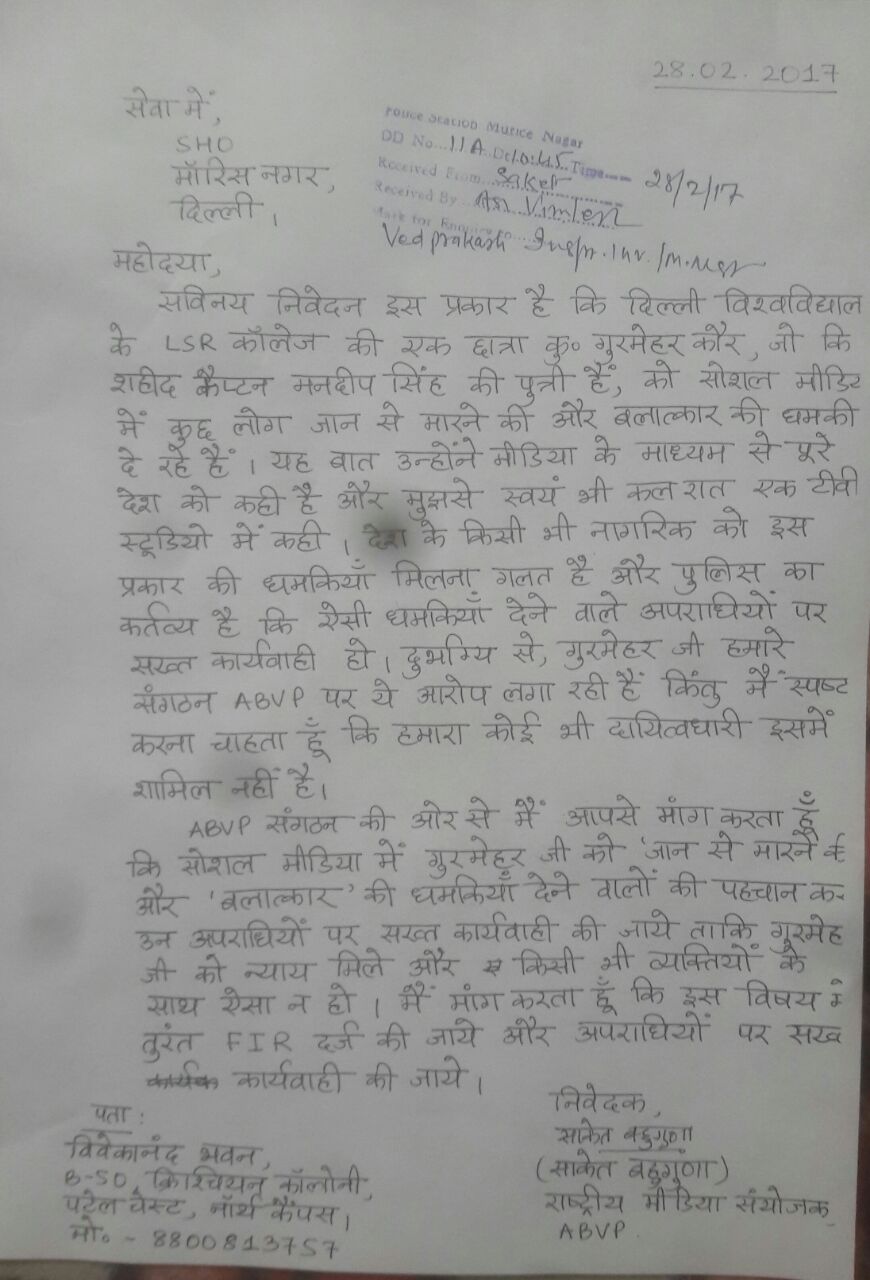 28.02.2017
सेवा में,
SHO
मॉरिस नगर,
दिल्ली ।
Police Station Murice Nagar
DD No...11A..Dt.10:45..Time---- 28/2/17
Received From...Saket
Received By..ASI Vimlesh
Mark for
Ved prakash Inspr. Inv. /M.Ngr
महोदया,
सविनय निवेदन इस प्रकार है कि दिल्ली विश्वविद्याल
के LSR कॉलेज की एक छात्रा कु० गुरमेहर कौर, जो कि
शहीद कैप्टन मनदीप सिंह की पुत्री हैं, को सोशल मीडि
में कुछ लोग जान से मारने की और बलात्कार की धमकी
दे रहे हैं । यह बात उन्होंने मीडिया के माध्यम से पूरे
देश को कही है और मुझसे स्वयं भी कल रात एक टीवी
स्टूडियो में कही । देश के किसी भी नागरिक को इस
प्रकार की धमकियाँ मिलना गलत है और पुलिस का
कर्तव्य है कि ऐसी धमकियाँ देने वाले अपराधियों पर
सख्त कार्यवाही हो । दुर्भाग्य से, गुरमेहर जी हमारे
संगठन ABVP पर ये आरोप लगा रही हैं किंतु मैं स्पष्ट
करना चाहता हूँ कि हमारा कोई भी दायित्वधारी इसमें
शामिल नहीं है ।
ABVP संगठन की ओर से मैं आपसे मांग करता हूँ
कि सोशल मीडिया में गुरमेहर जी को 'जान से मारने
और 'बलात्कार' की धमकियाँ देने वालों की पहचान क
उन अपराधियों पर सख्त कार्यवाही की जाये ताकि गुरमेह
जी को न्याय मिले और किसी भी व्यक्तियों के
साथ ऐसा न हो । मैं मांग करता हूँ कि इस विषय मे
तुरंत FIR दर्ज की जाये और अपराधियों पर सख्
कार्यवाही की जाये ।
निवेदक,
साकेत बहुगुणा
(साकेत बहुगुणा)
राष्ट्रीय मीडिया संयोजक,
ABVP
पता :
विवेकानंद भवन,
B-50, क्रिश्चियन कॉलोनी,
पटेल चेस्ट, नॉर्थ कैंपस ।
मो० - 8800813757